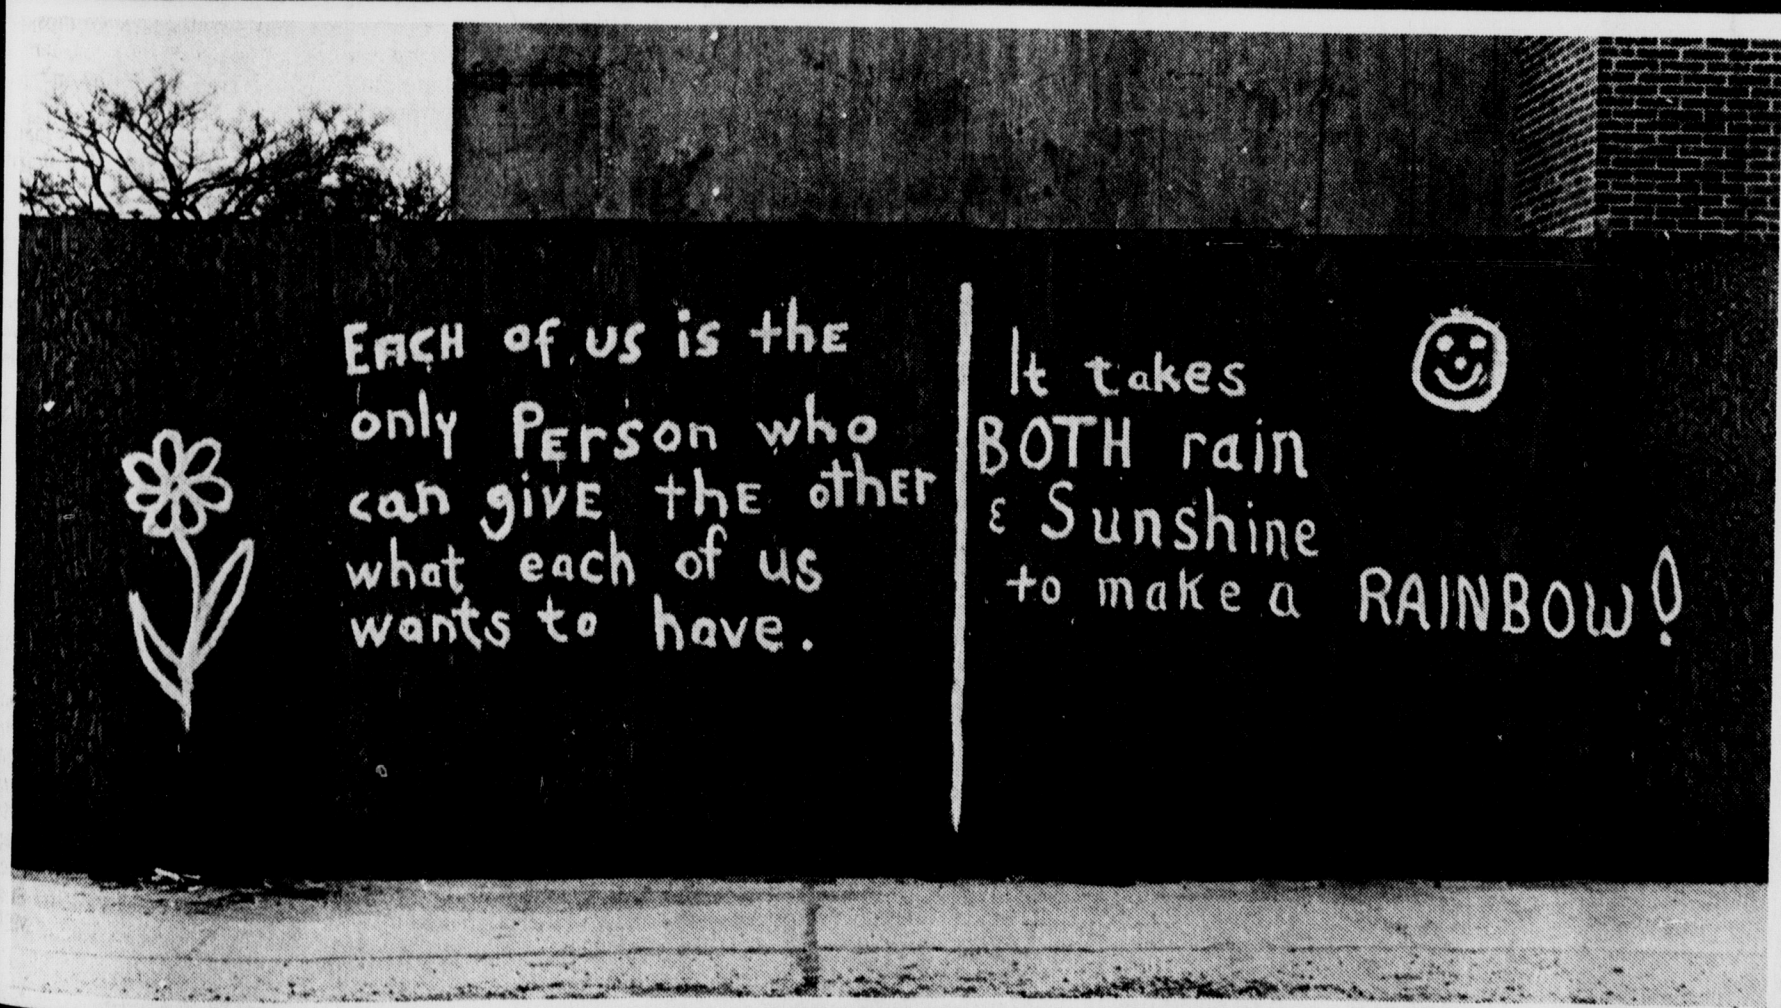 EACH of us is thE
only PErson who
can givE thE othEr
what each of us
wants to have.
It takes
BOTH rain
& Sunshine
to make a RAINBOW!